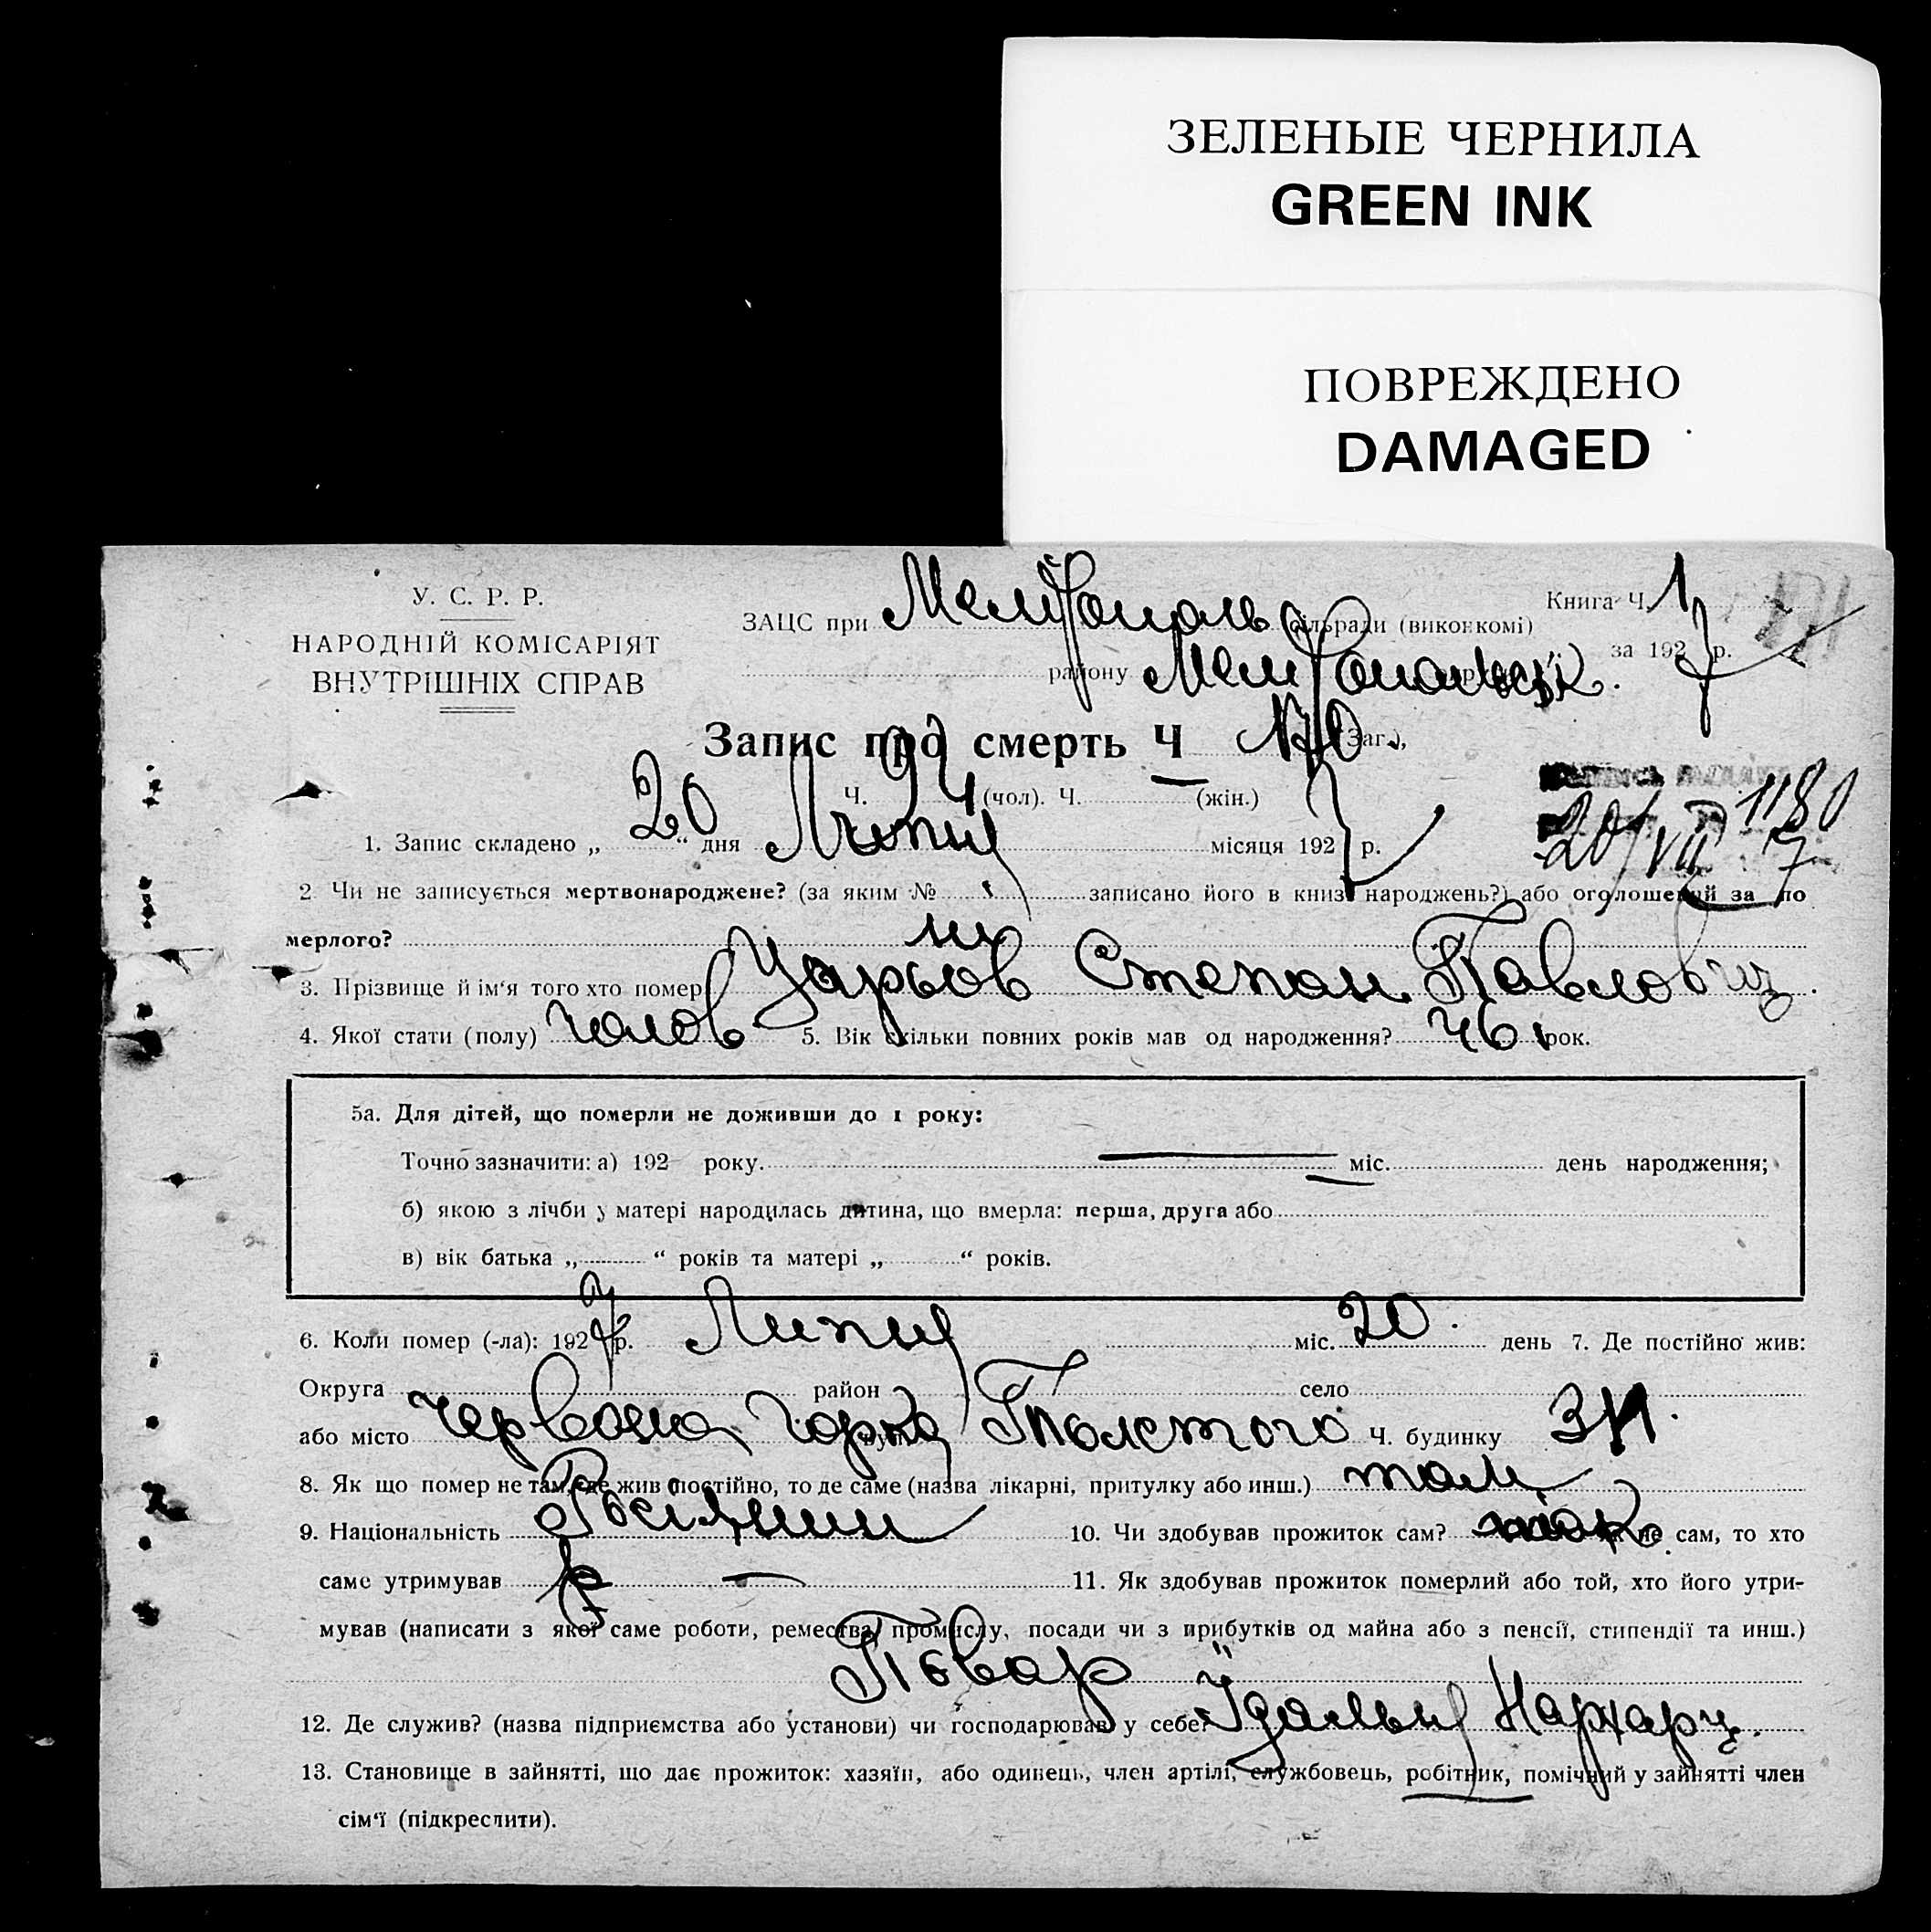 ЗЕЛЕНЫЕ ЧЕРНИЛА
GREEN INK
ПОВРЕЖДЕНО
DAMAGED
У. С. Р. Р.
НАРОДНІЙ КОМІСАРІЯТ
ВНУТРІШНІХ СПРАВ
Книга Ч. 1
ЗАЦС при Мелітополь сільради (виконкомі)
за 1927 р.
району Мелітопольськ.
Запис про смерть Ч 170 (Заг.),
Ч. 94 (чол). Ч. — (жін.)
1180
20/VII 7
1. Запис складено „20“ дня Липня місяця 1927 р.
2 Чи не записується мертвонароджене? (за яким № записано його в книзі народжень?) або оголошений за по
мерлого? ні
3. Прізвище й ім‘я того хто помер Царьов Степан Павлович.
4. Якої стати (полу) Чолов 5. Вік скільки повних років мав од народження? 46 рок.
5а. Для дітей, що померли не доживши до 1 року:
Точно зазначити: а) 192 року. міс. день народження;
б) якою з лічби у матері народилась дитина, що вмерла: перша, друга або
в) вік батька „ “ років та матері „ “ років.
6. Коли помер (-ла): 1927 р. Липня міс. 20 день 7. Де постійно жив:
Округа район село
або місто Червона Горка Толстого Ч. будинку
8. Як що помер не там, де жив постійно, то де саме (назва лікарні, притулку або инш.) там
9. Національність Росіянин 10. Чи здобував прожиток сам? так не сам, то хто
саме утримував — 11. Як здобував прожиток померлий або той, хто його утри-
мував (написати з якої саме роботи, ремества, промислу, посади чи з прибутків од майна або з пенсії, стипендії та инш.)
Повар
12. Де служив? (назва підприємства або установи) чи господарював у себе? Їдальня Нархарч.
13. Становище в зайнятті, що дає прожиток: хазяїн, або одинець, член артілі, службовець, робітник, помічний у зайнятті член
сім‘ї (підкреслити).